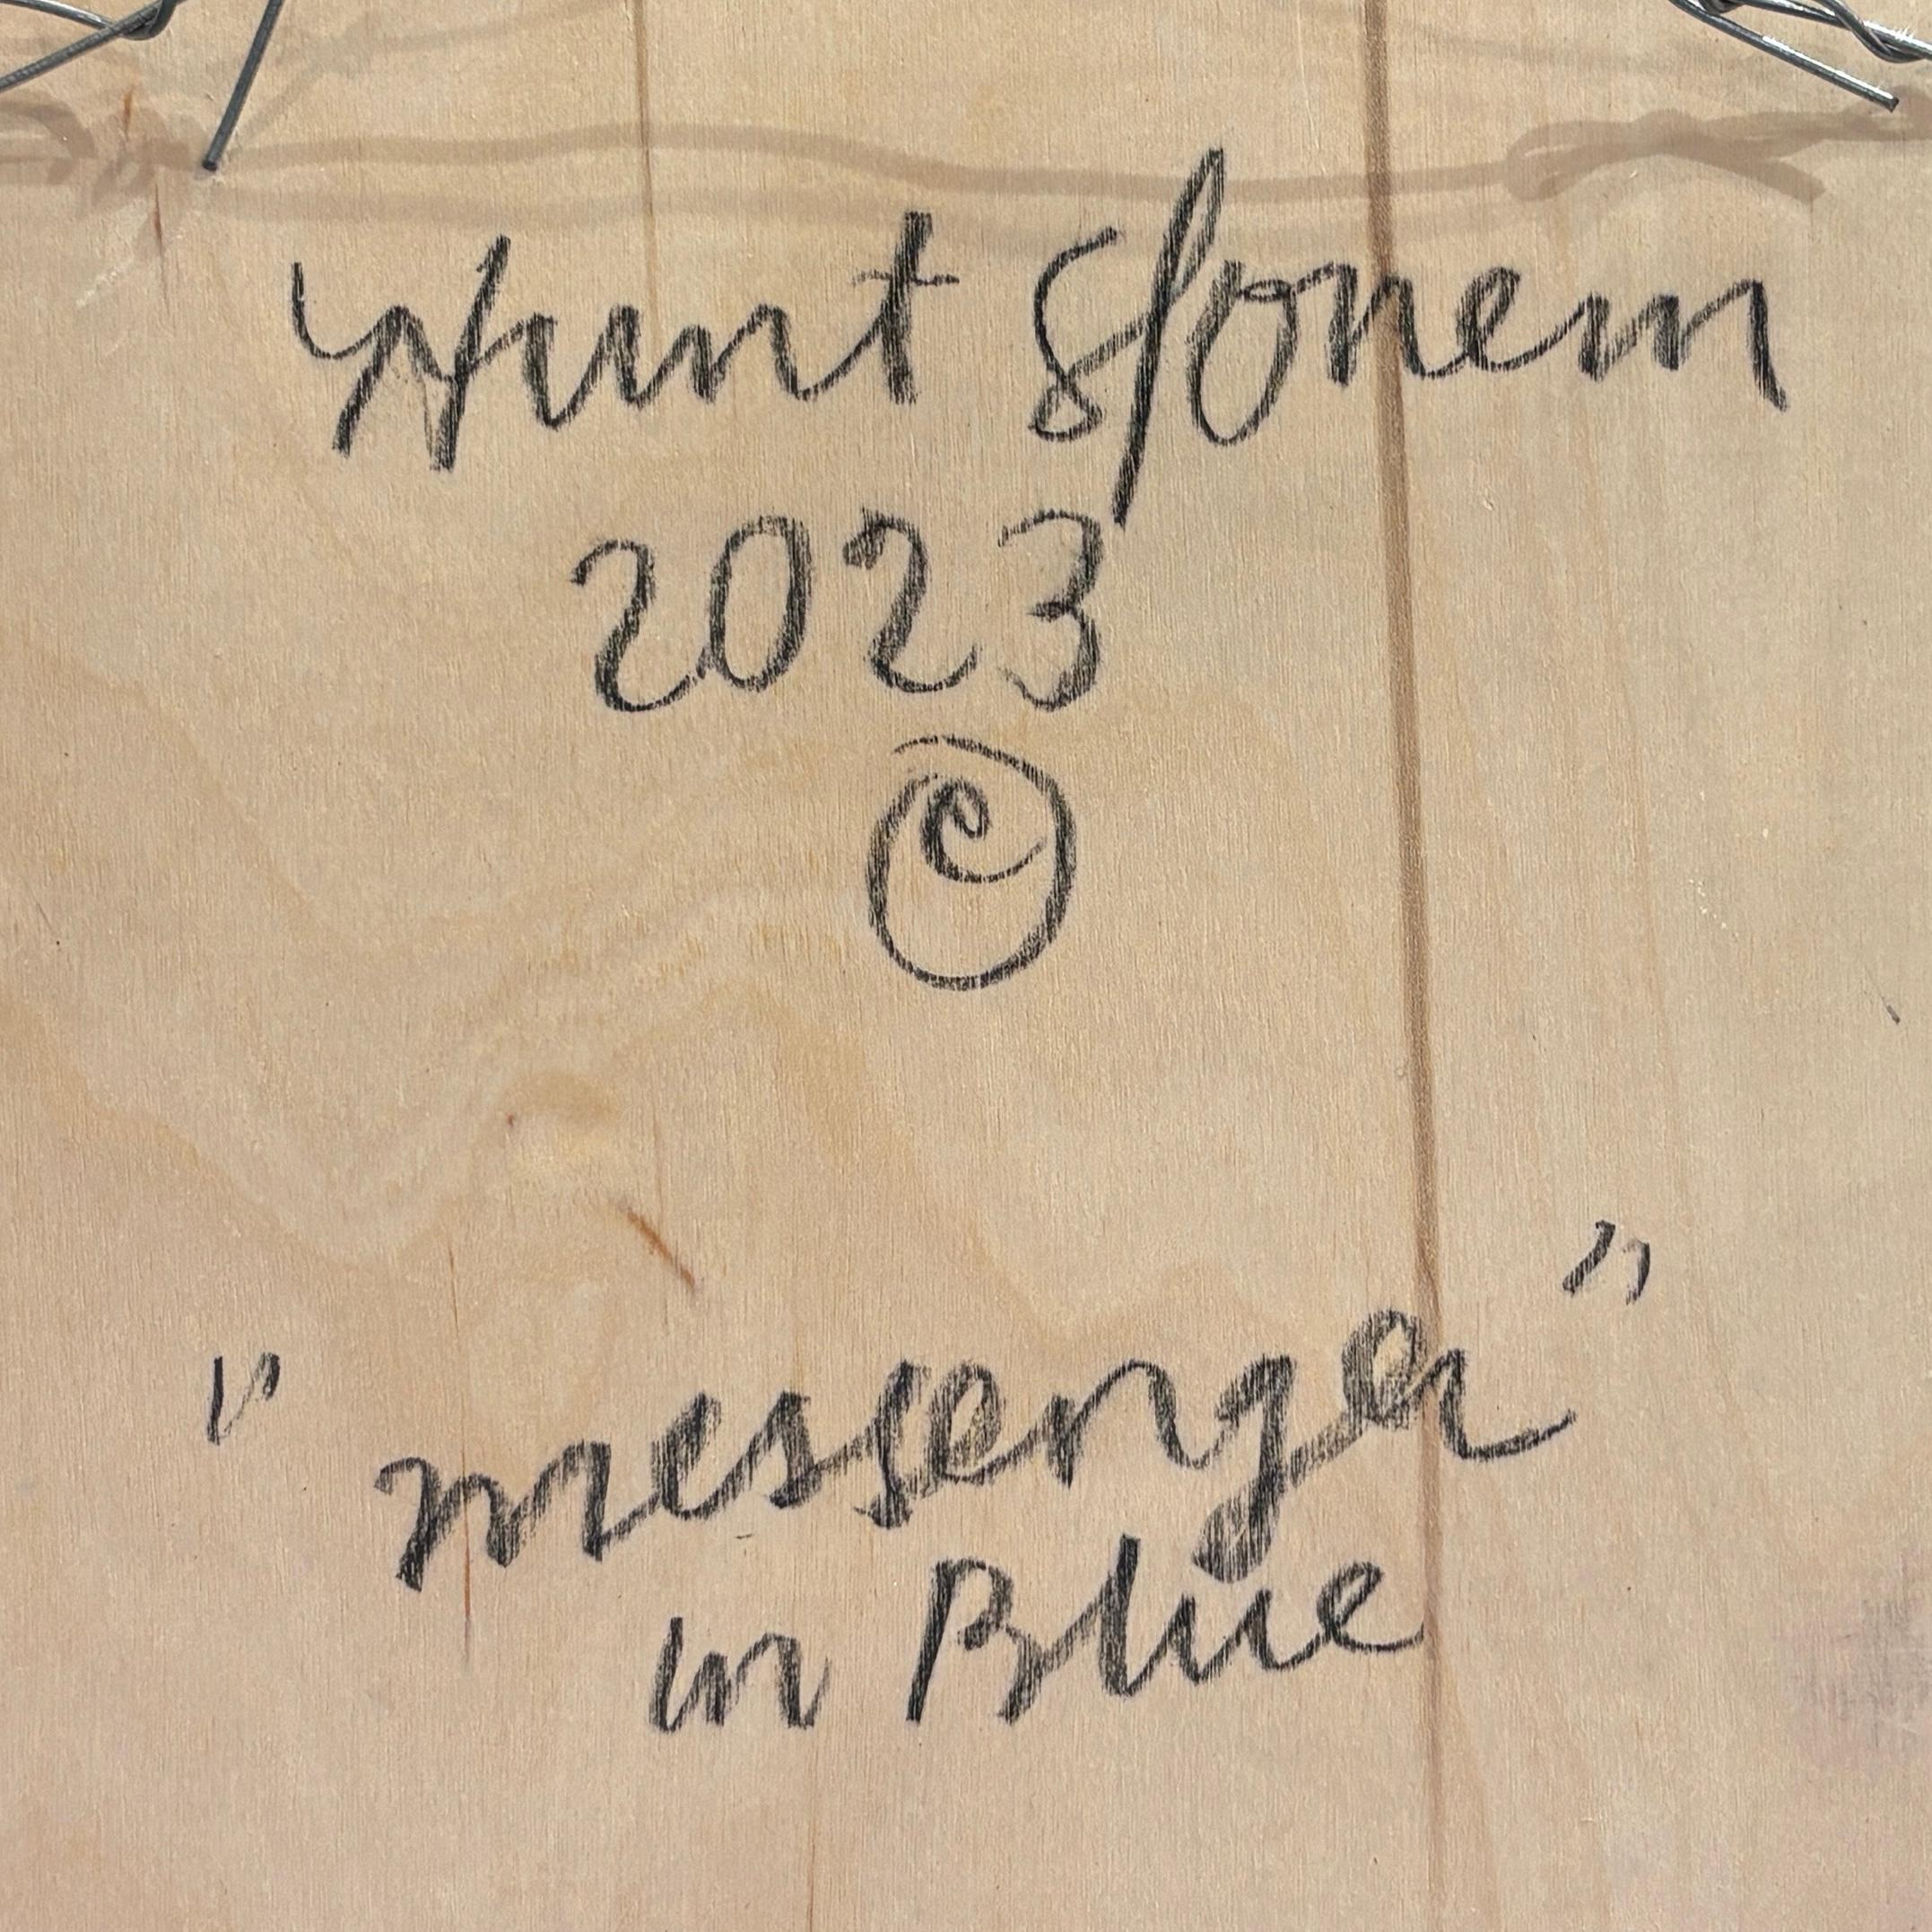 Hunt Slonem
2023
©
"messenger"
in Blue